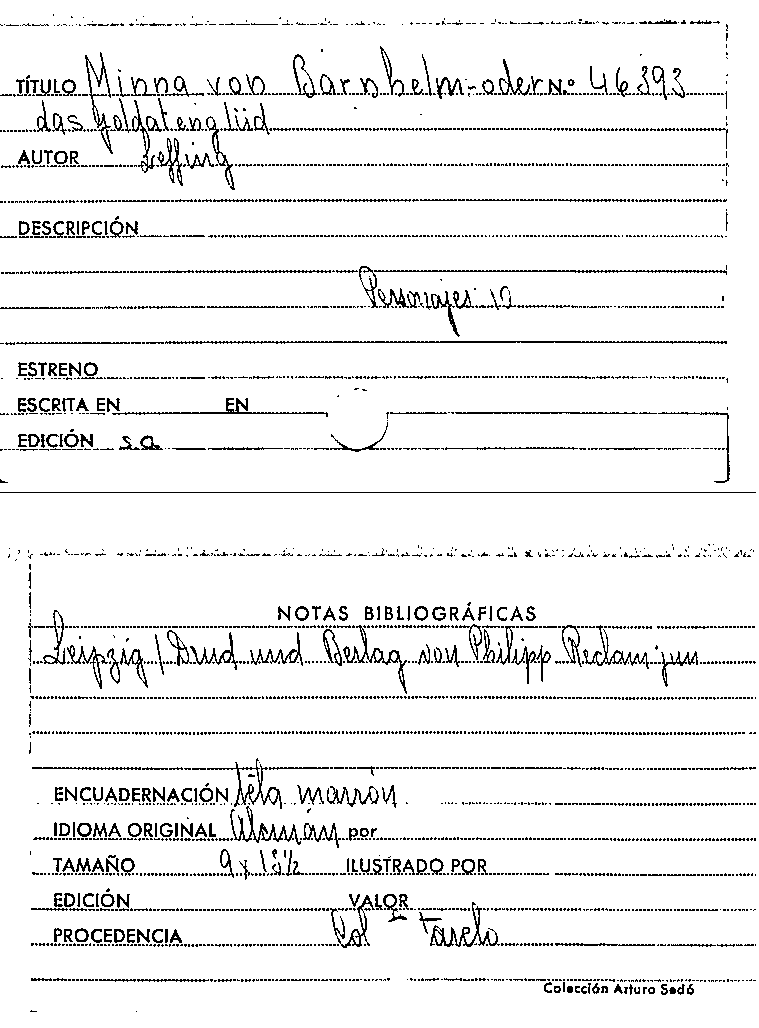 TÍTULO Minna von Barnhelm-oder N.º 46393
das Goldatenglüd
AUTOR Leffing
DESCRIPCIÓN
Personajes 10
ESTRENO
ESCRITA EN EN
EDICIÓN s.a
NOTAS BIBLIOGRÁFICAS
Leipzig / Drud und Berlag von Philipp Reclam jun
ENCUADERNACIÓN tela marrón
IDIOMA ORIGINAL Alemán por
TAMAÑO 9 x 13½ ILUSTRADO POR
EDICIÓN VALOR
PROCEDENCIA Col
Colección Arturo Sedó